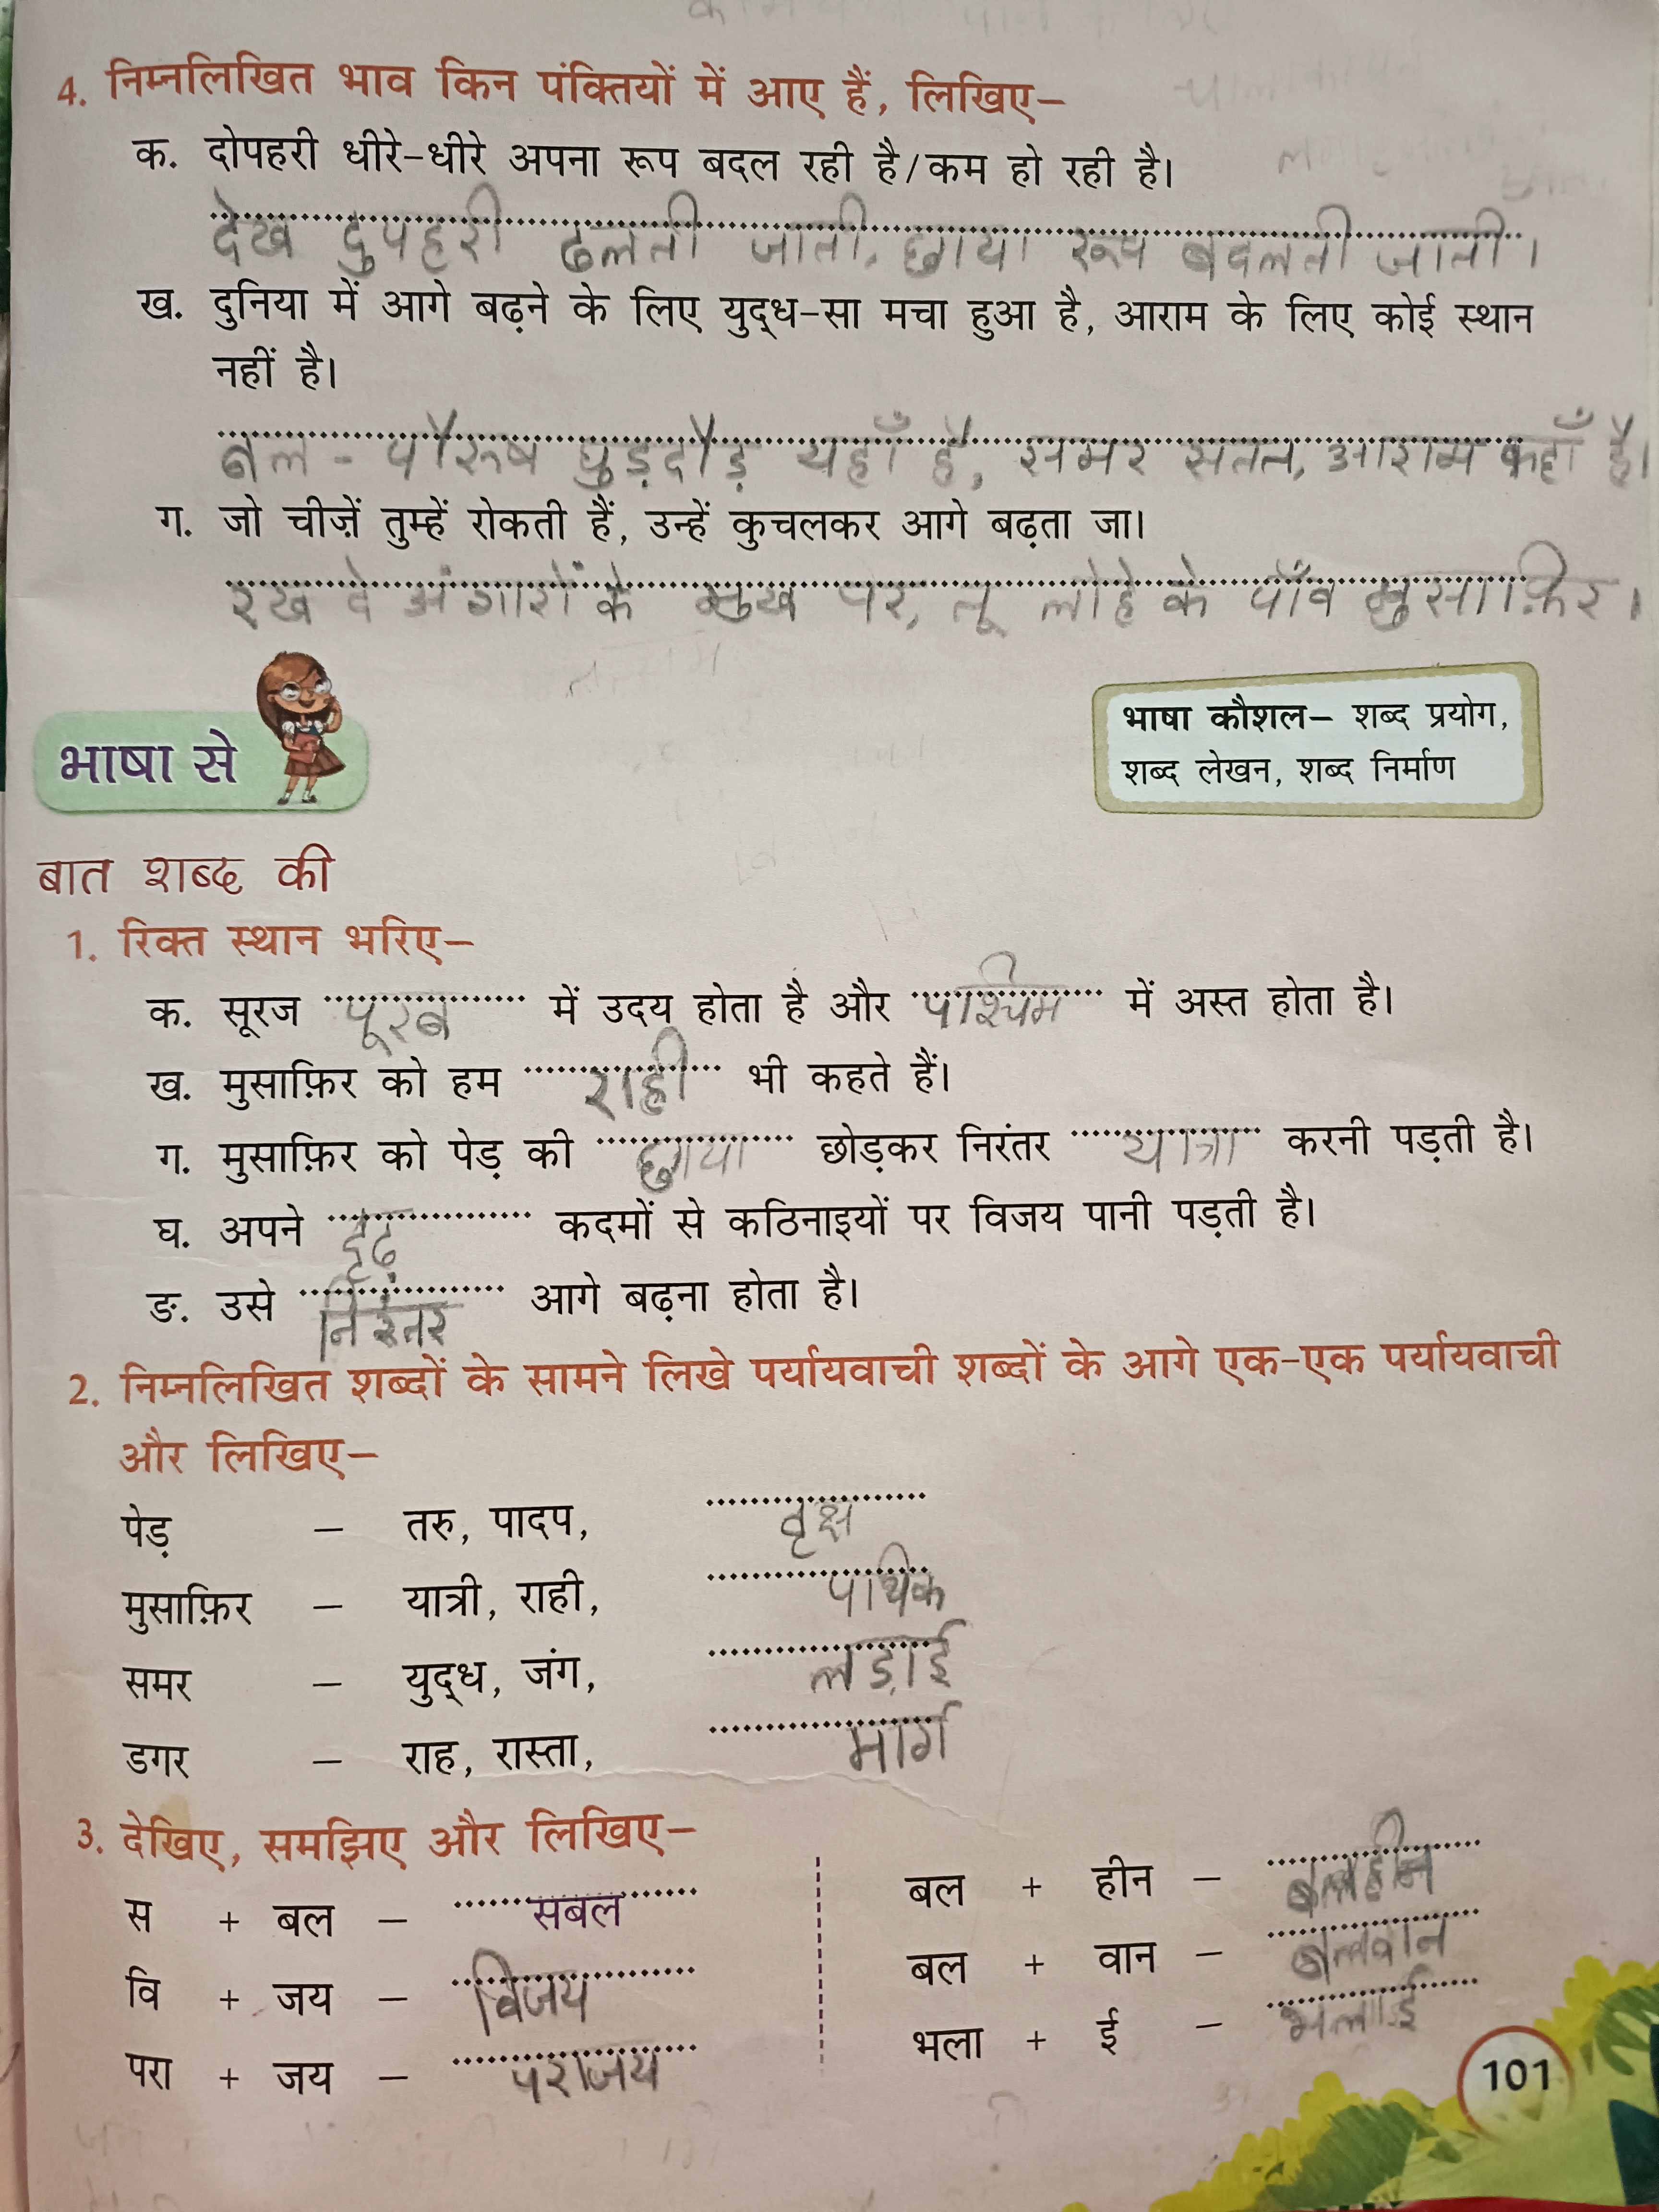 4. निम्नलिखित भाव किन पंक्तियों में आए हैं, लिखिए–
क. दोपहरी धीरे-धीरे अपना रूप बदल रही है/कम हो रही है।
देख दुपहरी ढलती जाती, छाया रूप बदलती जाती।
ख. दुनिया में आगे बढ़ने के लिए युद्ध-सा मचा हुआ है, आराम के लिए कोई स्थान
नहीं है।
बल - पौरुष घुड़दौड़ यहाँ है, समर सतत, आराम कहाँ है।
ग. जो चीज़ें तुम्हें रोकती हैं, उन्हें कुचलकर आगे बढ़ता जा।
रख दे अंगारों के मुख पर, तू लोहे के पाँव मुसाफ़िर।
भाषा से
भाषा कौशल– शब्द प्रयोग,
शब्द लेखन, शब्द निर्माण
बात शब्द की
1. रिक्त स्थान भरिए–
क. सूरज पूरब में उदय होता है और पश्चिम में अस्त होता है।
ख. मुसाफ़िर को हम राही भी कहते हैं।
ग. मुसाफ़िर को पेड़ की छाया छोड़कर निरंतर यात्रा करनी पड़ती है।
घ. अपने दृढ़ कदमों से कठिनाइयों पर विजय पानी पड़ती है।
ङ. उसे निरंतर आगे बढ़ना होता है।
2. निम्नलिखित शब्दों के सामने लिखे पर्यायवाची शब्दों के आगे एक-एक पर्यायवाची
और लिखिए–
पेड़ – तरु, पादप, वृक्ष
मुसाफ़िर – यात्री, राही, पथिक
समर – युद्ध, जंग, लड़ाई
डगर – राह, रास्ता, मार्ग
3. देखिए, समझिए और लिखिए–
स + बल – सबल
वि + जय – विजय
परा + जय – पराजय
बल + हीन – बलहीन
बल + वान – बलवान
भला + ई – भलाई
101